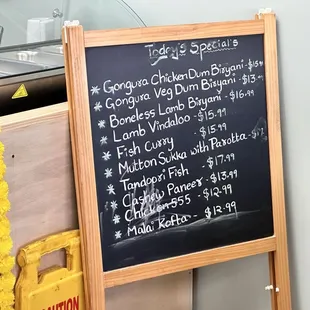 Today's Specials
* Gongura Chicken Dum Biryani
* Gongura Veg Dum Biryani - $13.
* Boneless Lamb Biryani - $16.99
* Lamb Vindaloo - $15.99
* Fish Curry - $15.99
* Mutton Sukka with Parotta
* Tandoori Fish - $17.99
* Cashew Paneer - $13.99
* Chicken 555 - $12.99
* Malai Kofta - $12.99
CAUTION